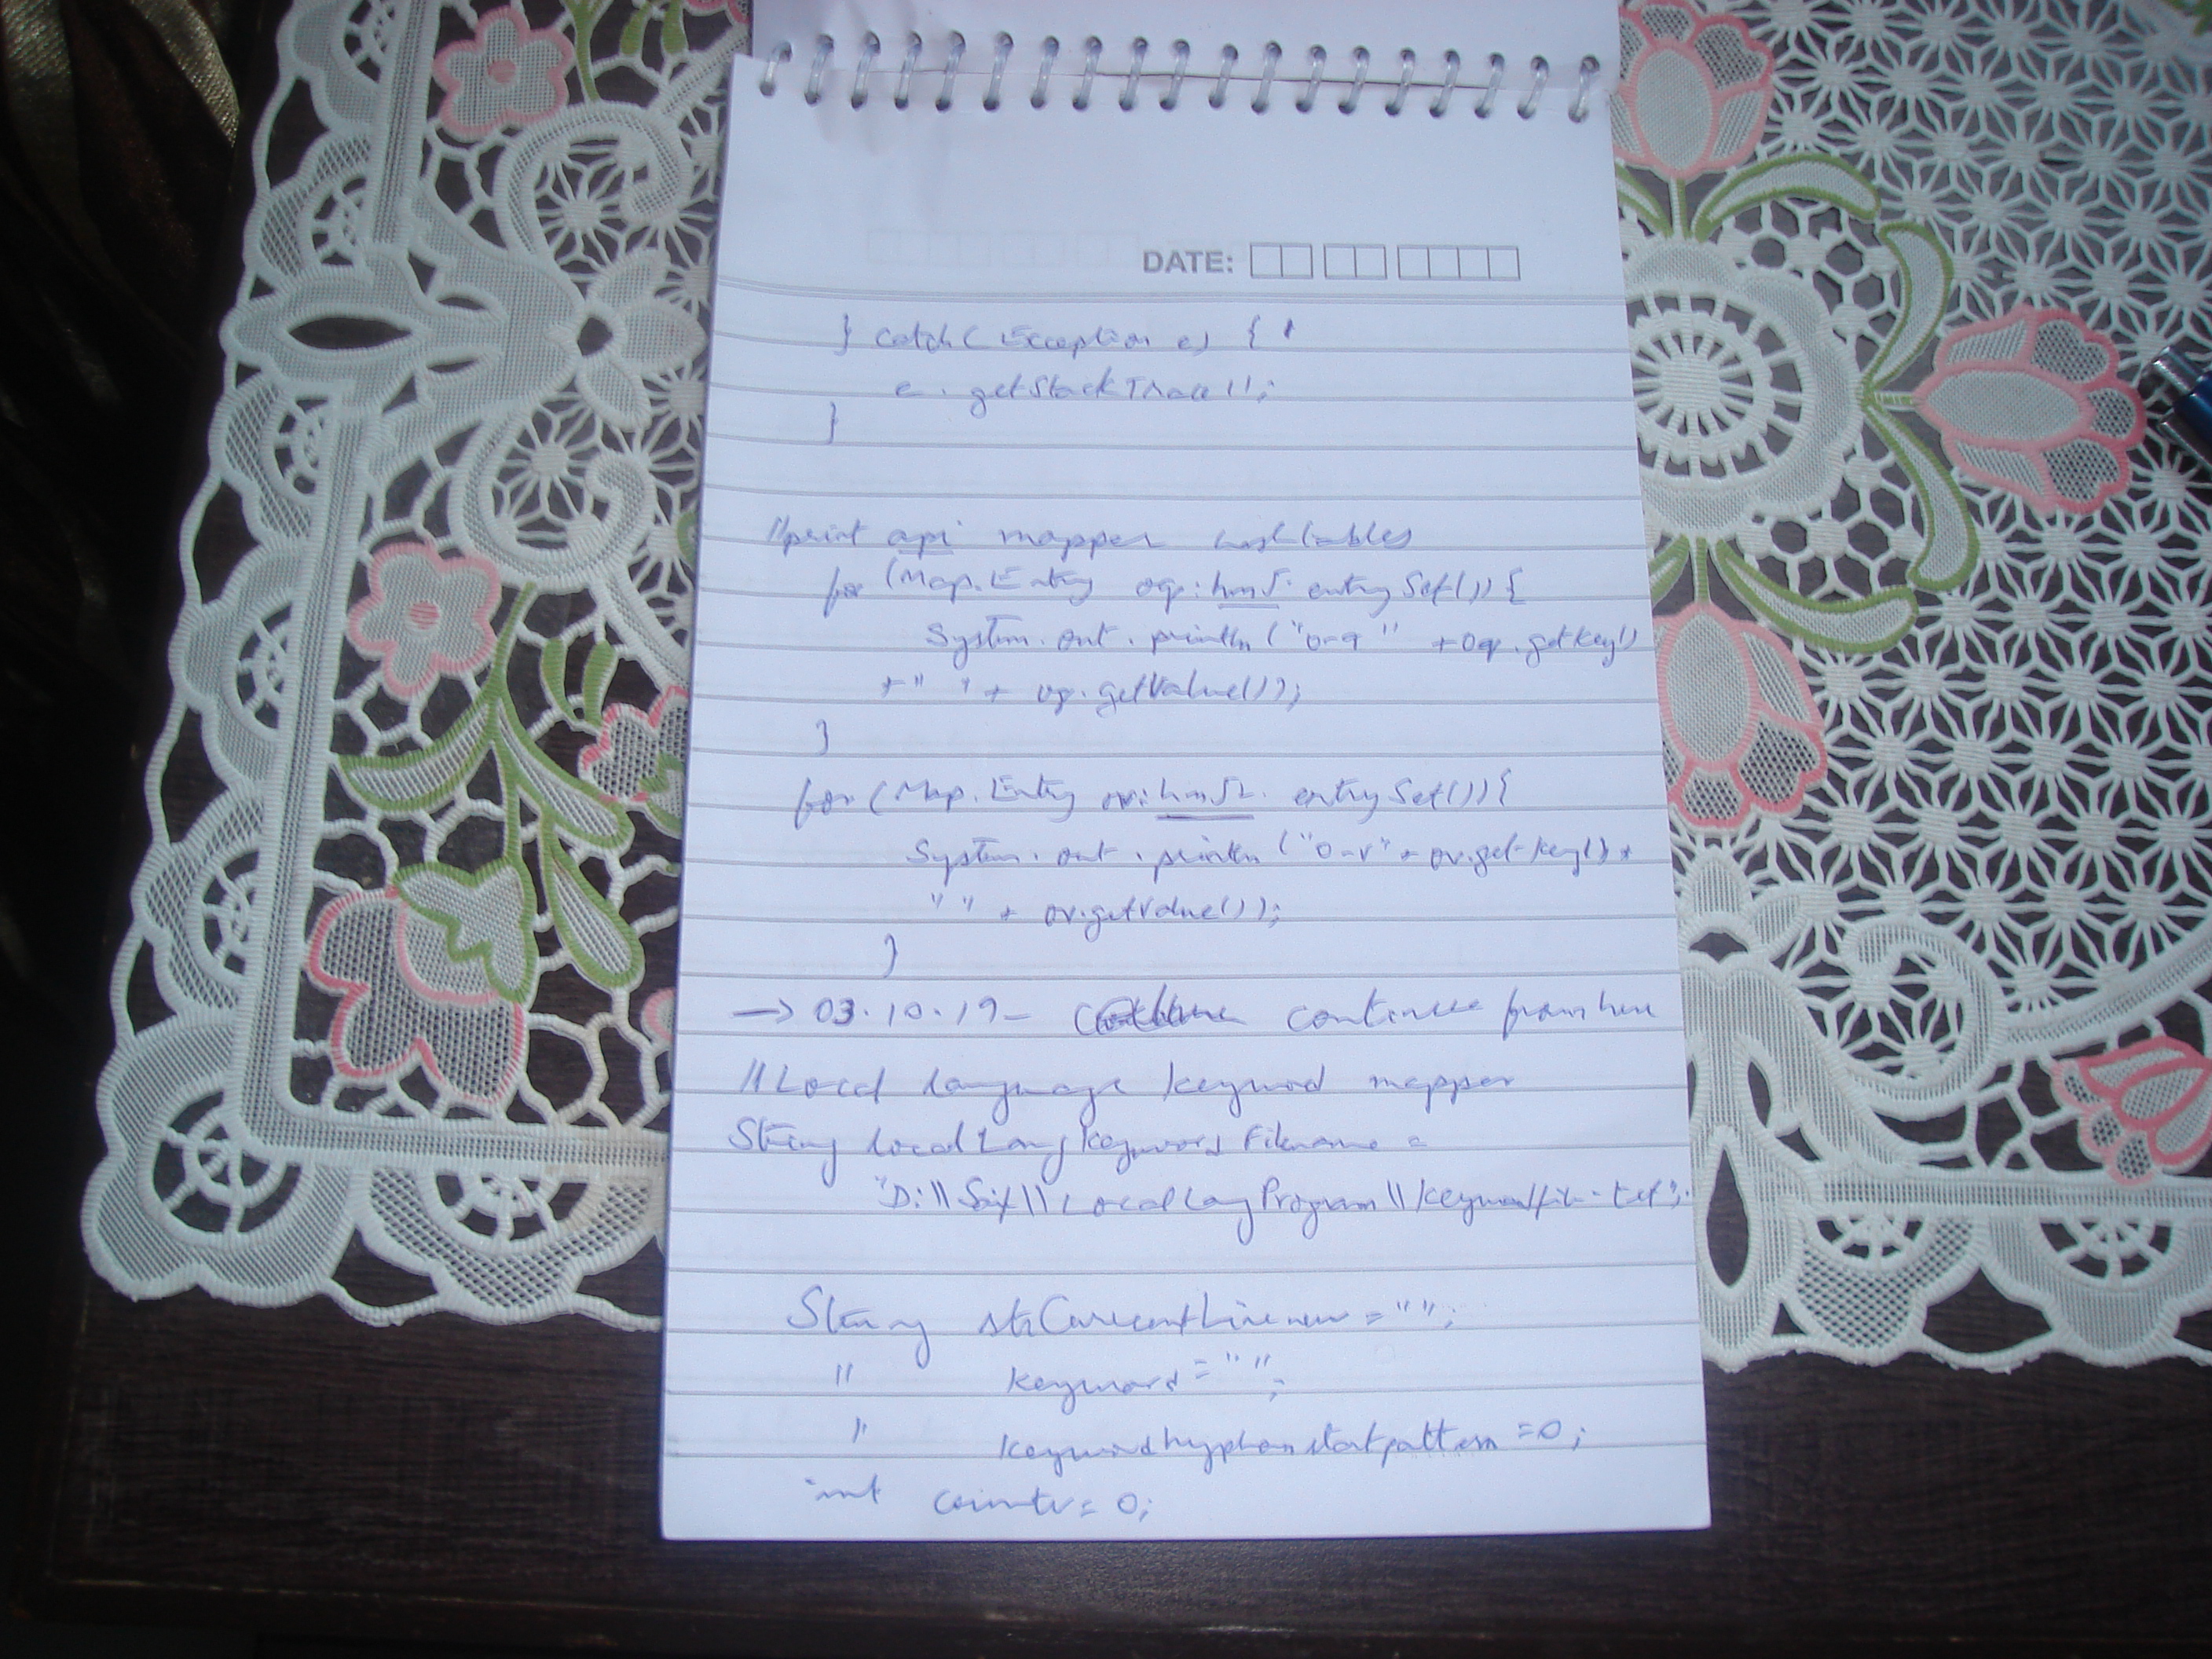 DATE:
} catch ( Exception e) {
e. getStackTrace();
}
//print api mapper hashtables
for (Map.Entry oq: hm5. entrySet()) {
System.out.println ("o-q" +oq.getKey()
+" "+ oq.getValue());
}
for (Map.Entry ov: hm52. entrySet()) {
System.out.println ("o-v"+ ov.getKey() +
" " + ov.getValue());
}
→ 03.10.19- continue from here
//Local language keyword mapper
String localLangkeyword Filename =
"D:\\ \\LocalLangProgram\\keywordfile.txt";
String strCurrentLinenew = "";
" keyword = "";
" keywordhyphenstartpattern =0;
int countv= 0;